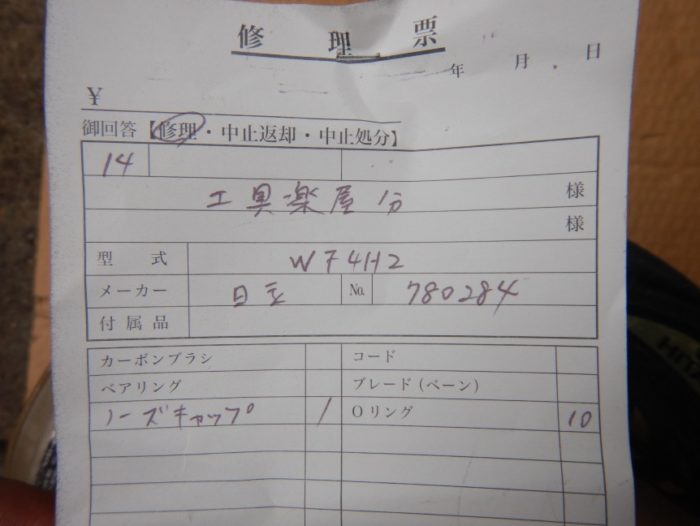 修理票
年 月 日
¥
御回答【修理・中止返却・中止処分】
14
工具楽屋分 様
様
型式 WF4H2
メーカー 日立 No. 780284
付属品
カーボンブラシ コード
ベアリング ブレード(ベーン)
ノーズキャップ 1 Oリング 10
HITA